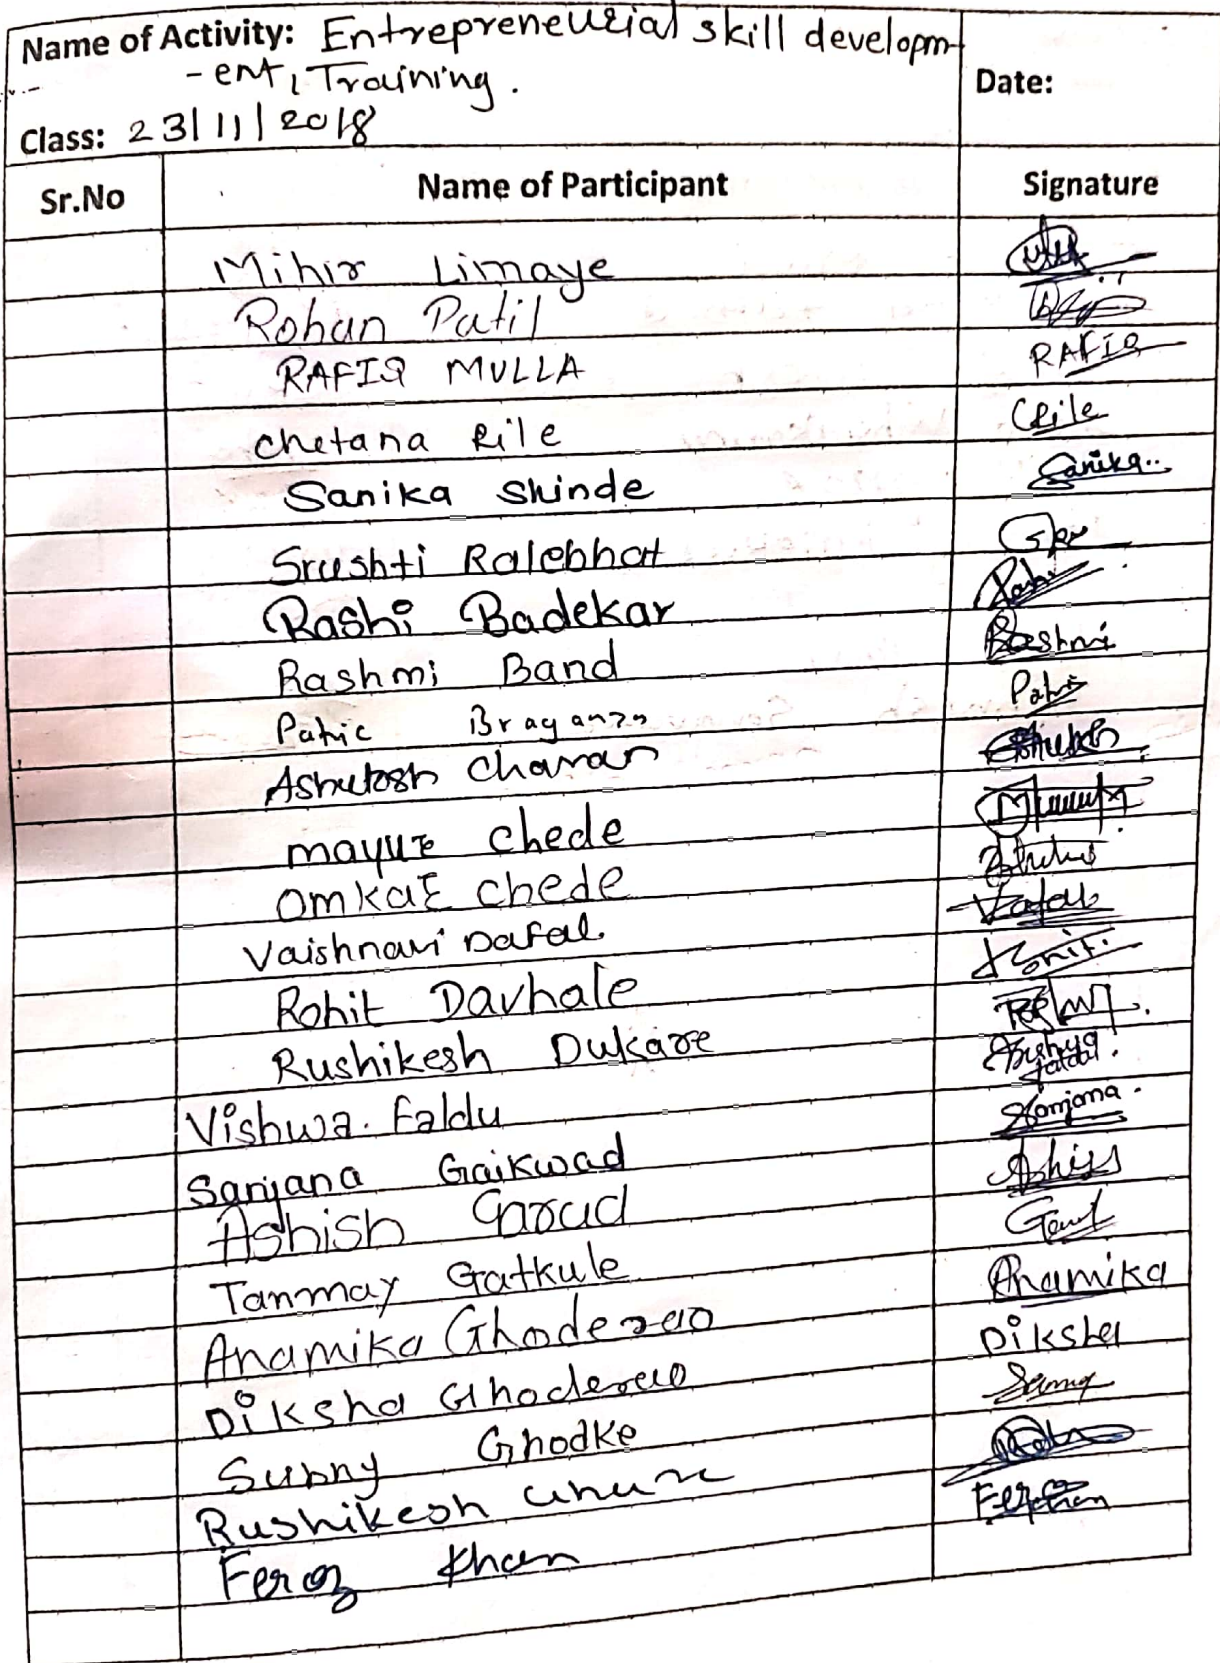 Name of Activity: Entrepreneurial skill developm-
-ent, Training.
Date:
Class: 23/11/2018
Sr.No Name of Participant Signature
Mihir Limaye
Rohan Patil
RAFIQ MULLA RAFIQ
Chetana Rile CRile
Sanika Shinde Sanika..
Srushti Ralebhat
Rashi Badekar Rashi
Rashmi Band Rashmi
Patric Braganza Patric
Ashutosh Chavan
mayur chede
omkar chede
Vaishnavi Dafal
Rohit Davhale Rohit.
Rushikesh Dukare
Vishwa. Faldu
Sanjana Gaikwad Sanjana.
Ashish Garud Ashish
Tanmay Gatkule
Anamika Ghoderao Anamika
Diksha Ghoderao Diksha
Sunny Ghodke Sunny
Rushikesh
Feroz Khan Feroz Khan